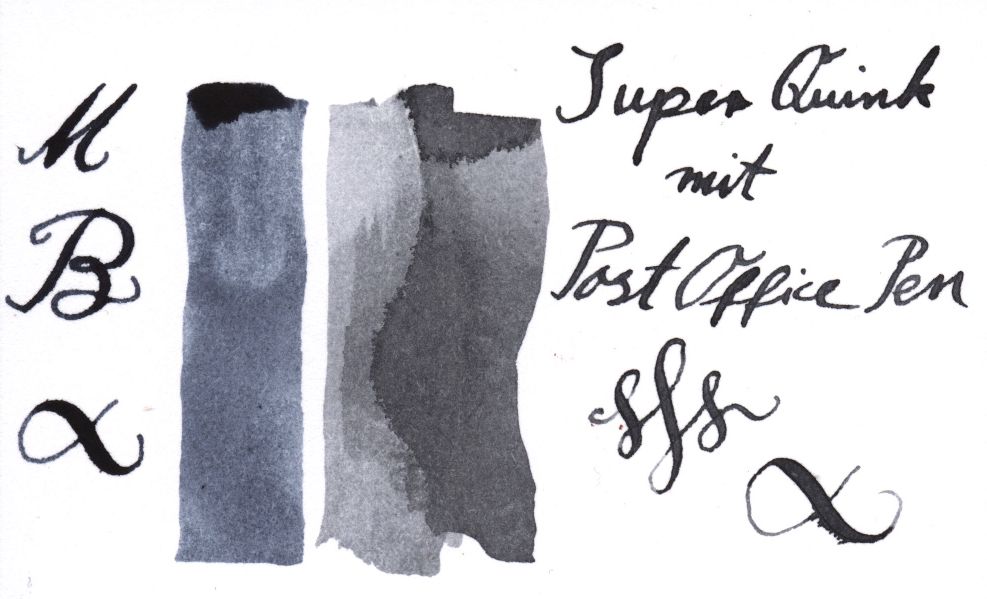 M
B
Super Quink
mit
Post Office Pen